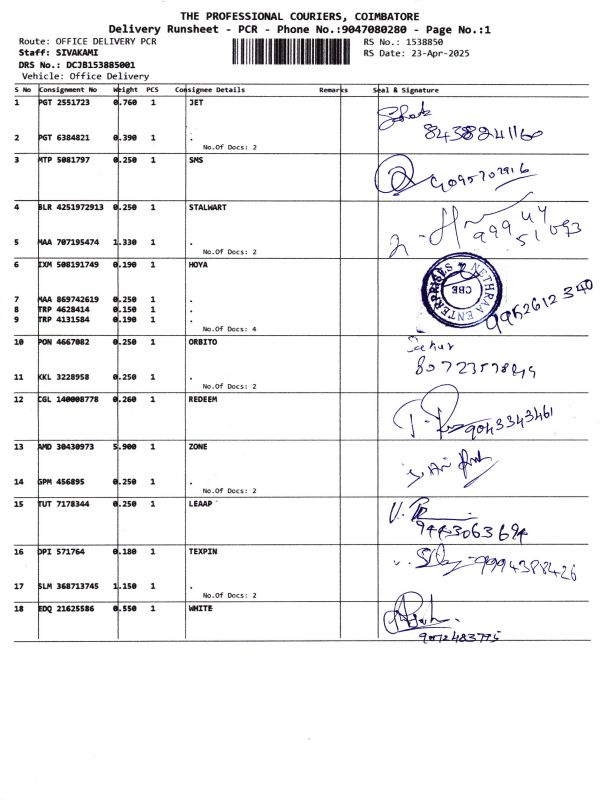 THE PROFESSIONAL COURIERS, COIMBATORE
Delivery Runsheet - PCR - Phone No.:9047080280 - Page No.:1
Route: OFFICE DELIVERY PCR RS No.: 1538850
Staff: SIVAKAMI RS Date: 23-Apr-2025
DRS No.: DCJB153885001
Vehicle: Office Delivery
S No Consignment No Weight PCS Consignee Details Remarks Seal & Signature
1 PGT 2551723 0.760 1 JET
8438241160
2 PGT 6384821 0.390 1 .
No.Of Docs: 2
3 MTP 5081797 0.250 1 SMS
9095702916
4 BLR 4251972913 0.250 1 STALWART
99944
51093
5 MAA 707195474 1.330 1 .
No.Of Docs: 2
6 IXM 508191749 0.190 1 HOYA
NETHRAA ENTERPRISES
CBE
9952612340
7 MAA 869742619 0.250 1 .
8 TRP 4628414 0.150 1 .
9 TRP 4131584 0.190 1 .
No.Of Docs: 4
10 PON 4667082 0.250 1 ORBITO
11 KKL 3228958 0.250 1 .
No.Of Docs: 2
12 CGL 140008778 0.260 1 REDEEM
9043343461
13 AMD 30430973 5.900 1 ZONE
14 GPM 456895 0.250 1 .
No.Of Docs: 2
15 TUT 7178344 0.250 1 LEAAP
9443063694
16 DPI 571764 0.180 1 TEXPIN
9994388426
17 SLM 368713745 1.150 1 .
No.Of Docs: 2
18 EDQ 21625586 0.550 1 WHITE